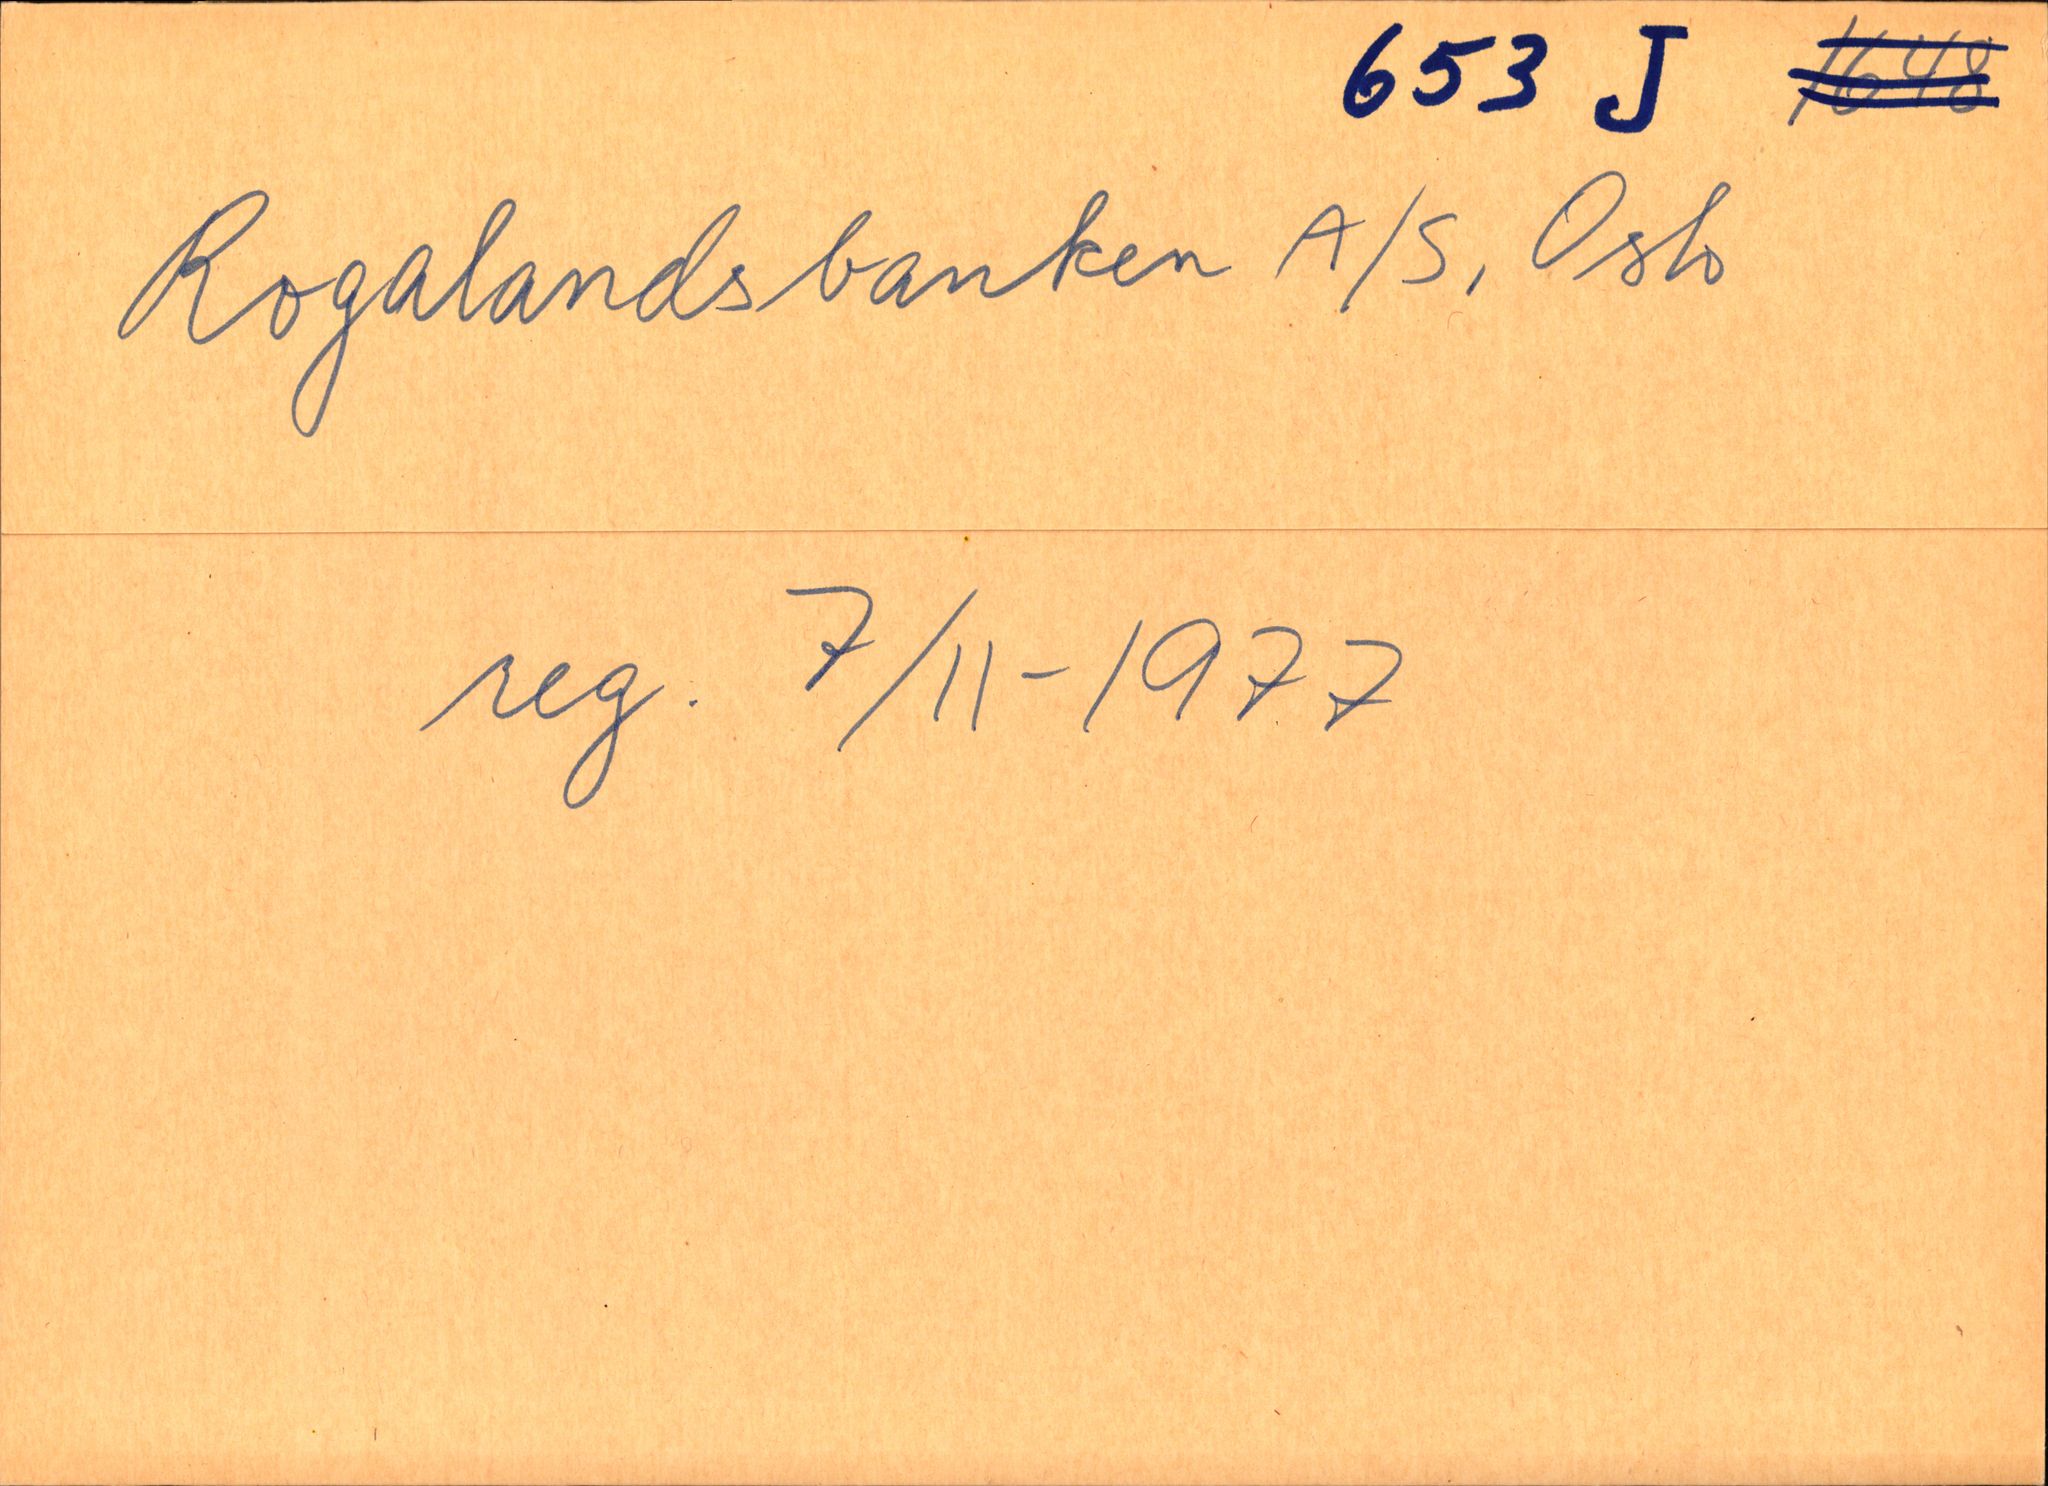 653 J 1648
Rogalandsbanken A/S, Oslo
reg. 7/11-1977